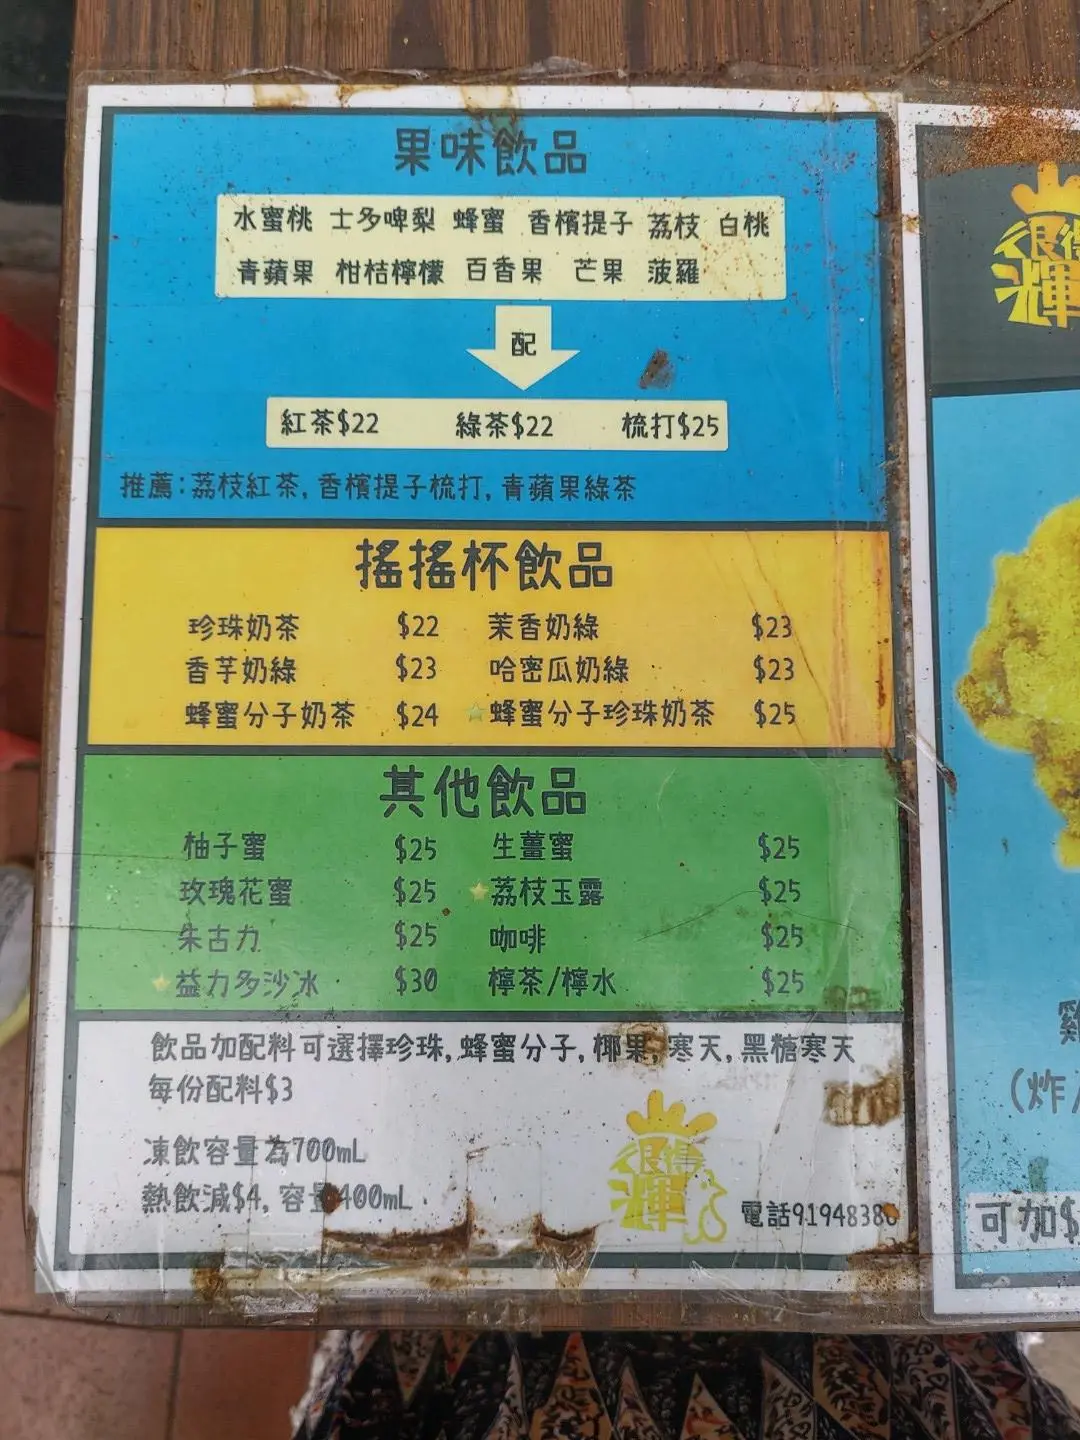 果味飲品
水蜜桃 士多啤梨 蜂蜜 香檳提子 荔枝 白桃
青蘋果 柑桔檸檬 百香果 芒果 菠羅
配
紅茶$22 綠茶$22 梳打$25
推薦:荔枝紅茶,香檳提子梳打,青蘋果綠茶
搖搖杯飲品
珍珠奶茶 $22 茉香奶綠 $23
香芋奶綠 $23 哈密瓜奶綠 $23
蜂蜜分子奶茶 $24 蜂蜜分子珍珠奶茶 $25
其他飲品
柚子蜜 $25 生薑蜜 $25
玫瑰花蜜 $25 荔枝玉露 $25
朱古力 $25 咖啡 $25
益力多沙冰 $30 檸茶/檸水 $25
飲品加配料可選擇珍珠,蜂蜜分子,椰果,寒天,黑糖寒天
每份配料$3
凍飲容量為700mL
熱飲減$4,容量400mL
很得
輝
電話9194838
很得
輝
雞
(炸/
可加$